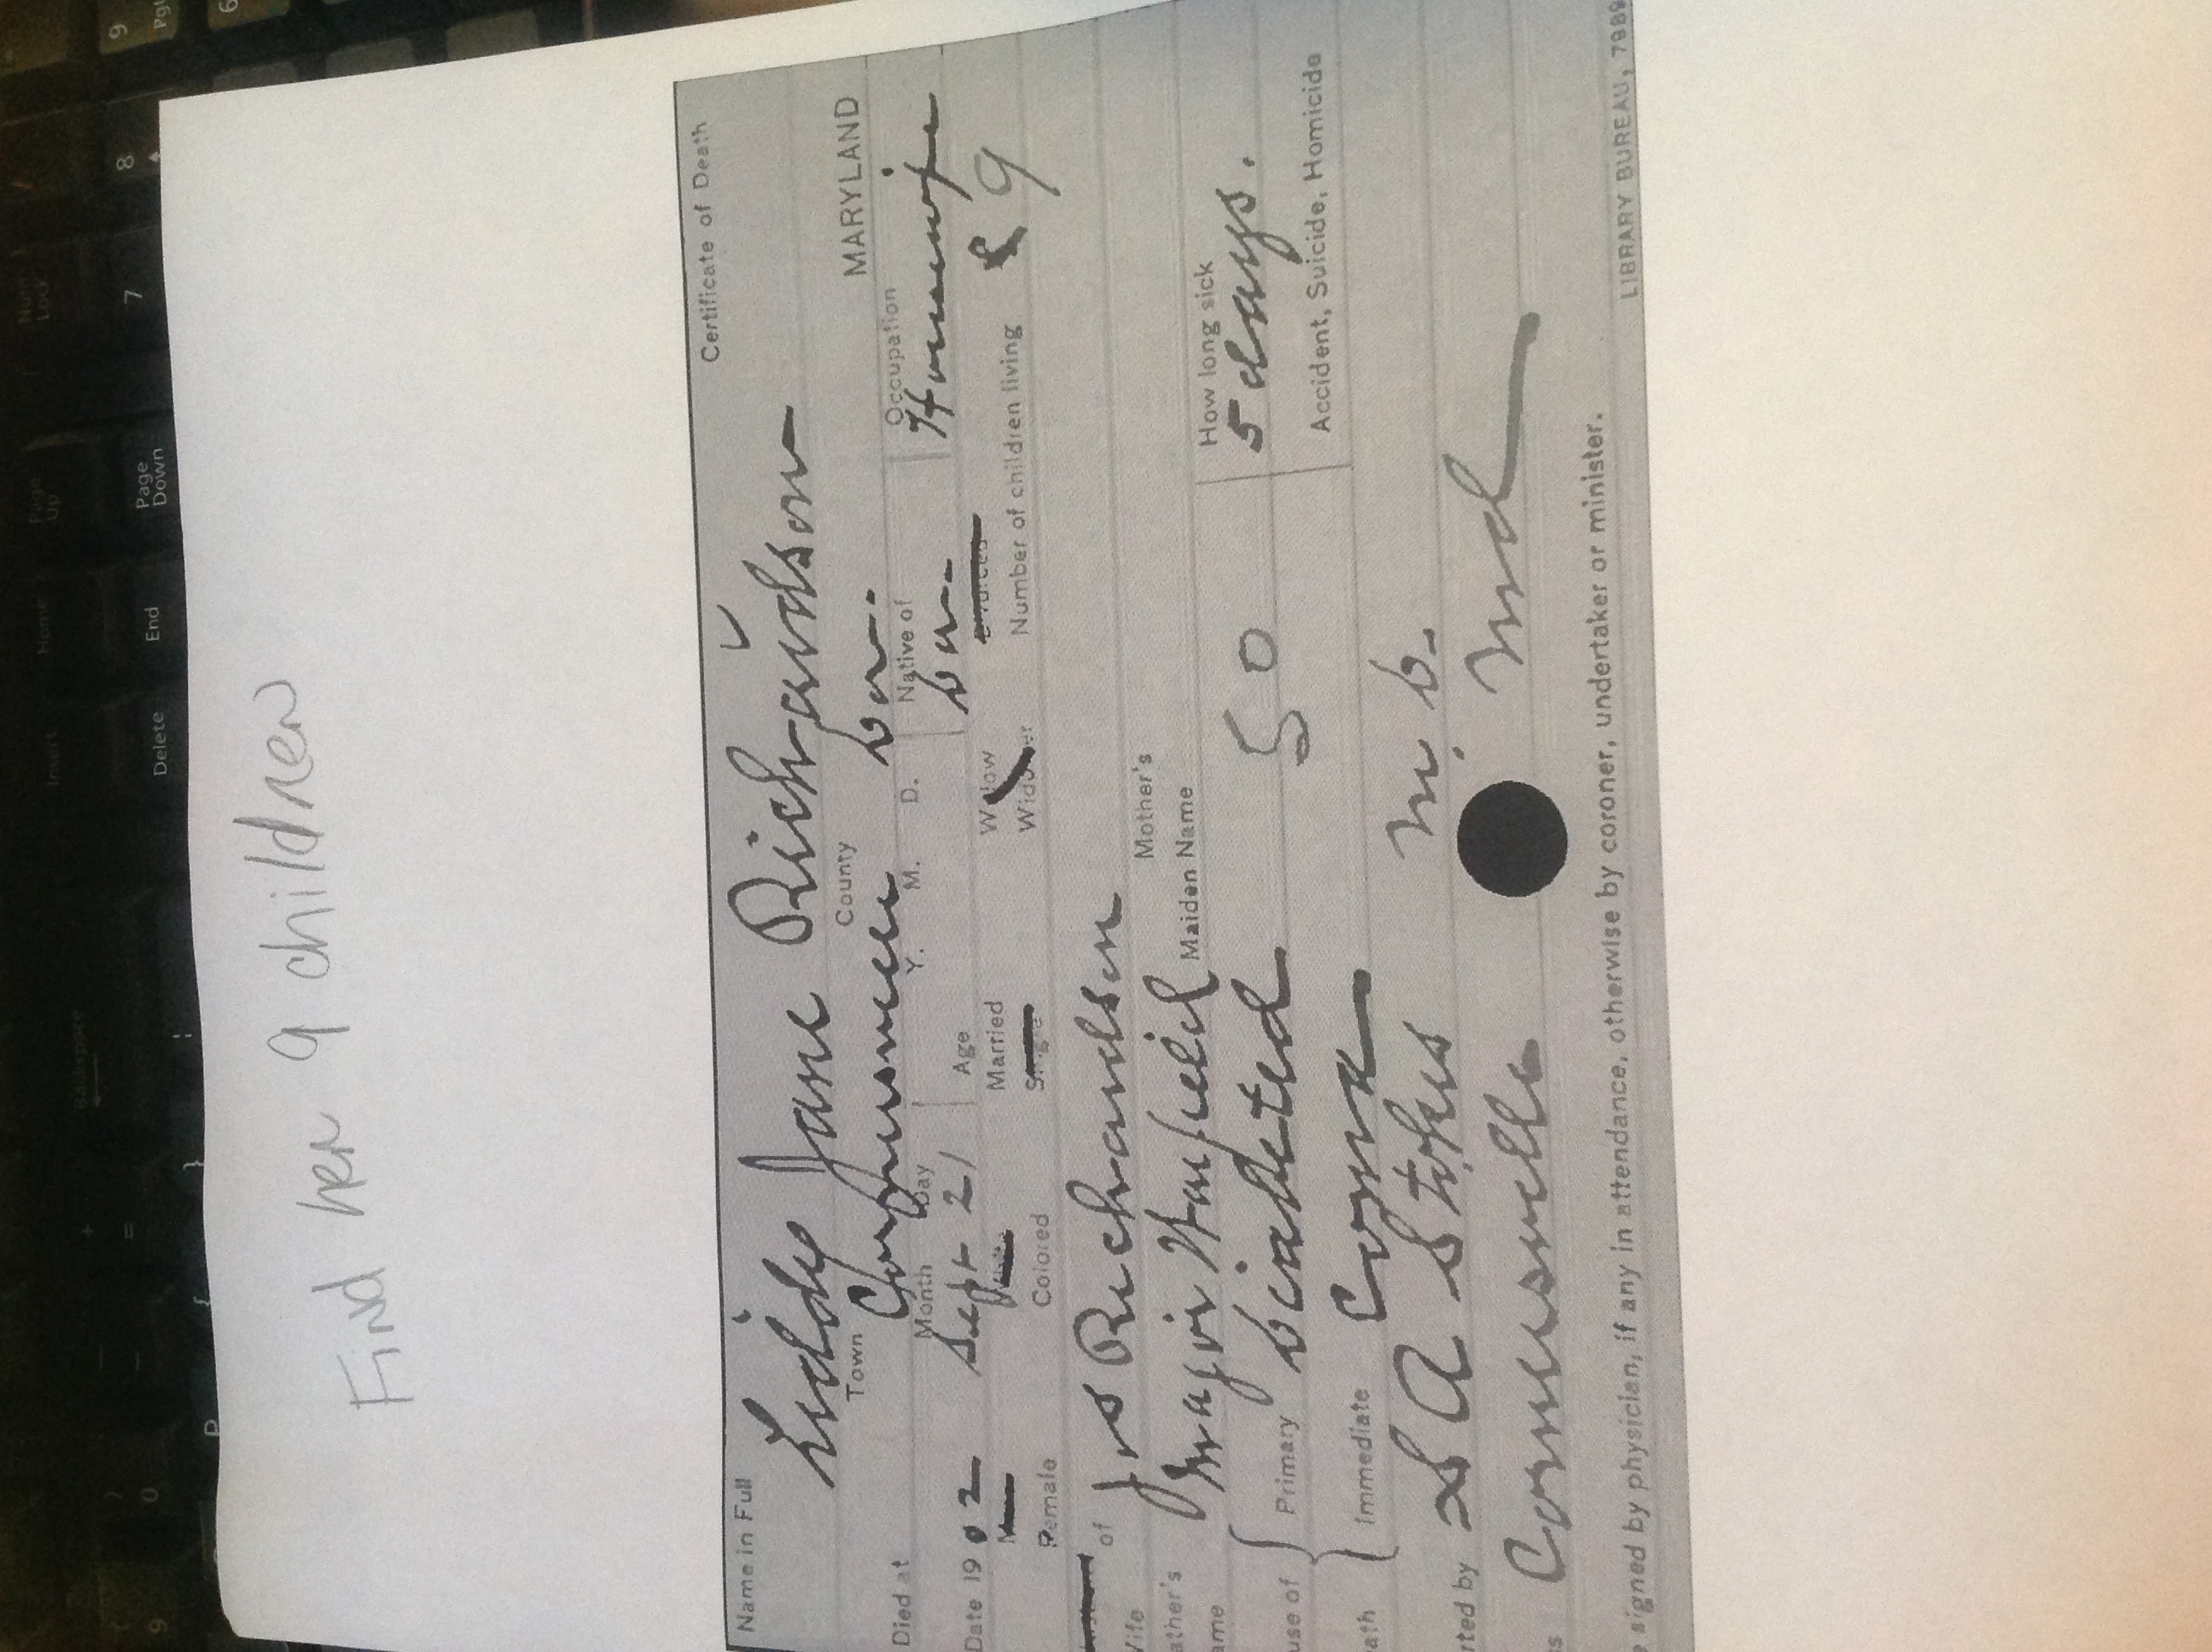 Find her 9 children
Certificate of Death
Name in Full
Liddy Jane Richardson
Town County MARYLAND
Died at Cornersville Dor.
Month Day Y. M. D. Native of Occupation
Date 1902 Sept 21 Age Dor. Housewife
Married Widow Divorced
Female Colored Single Widower Number of children living 9
Wife of Jos Richardson
Father's Name Major Mother's Maiden Name
Cause of Death Primary 50 How long sick 5 days.
Immediate Coma Accident, Suicide, Homicide
S A Stokes M. D.
Cornersville Md
signed by physician, if any in attendance, otherwise by coroner, undertaker or minister.
LIBRARY BUREAU, 7989
9 8 7
Page Up
Page Down
Num Lock
Home
End
Insert
Delete
Backspace
+ =
{ }
P
0
9